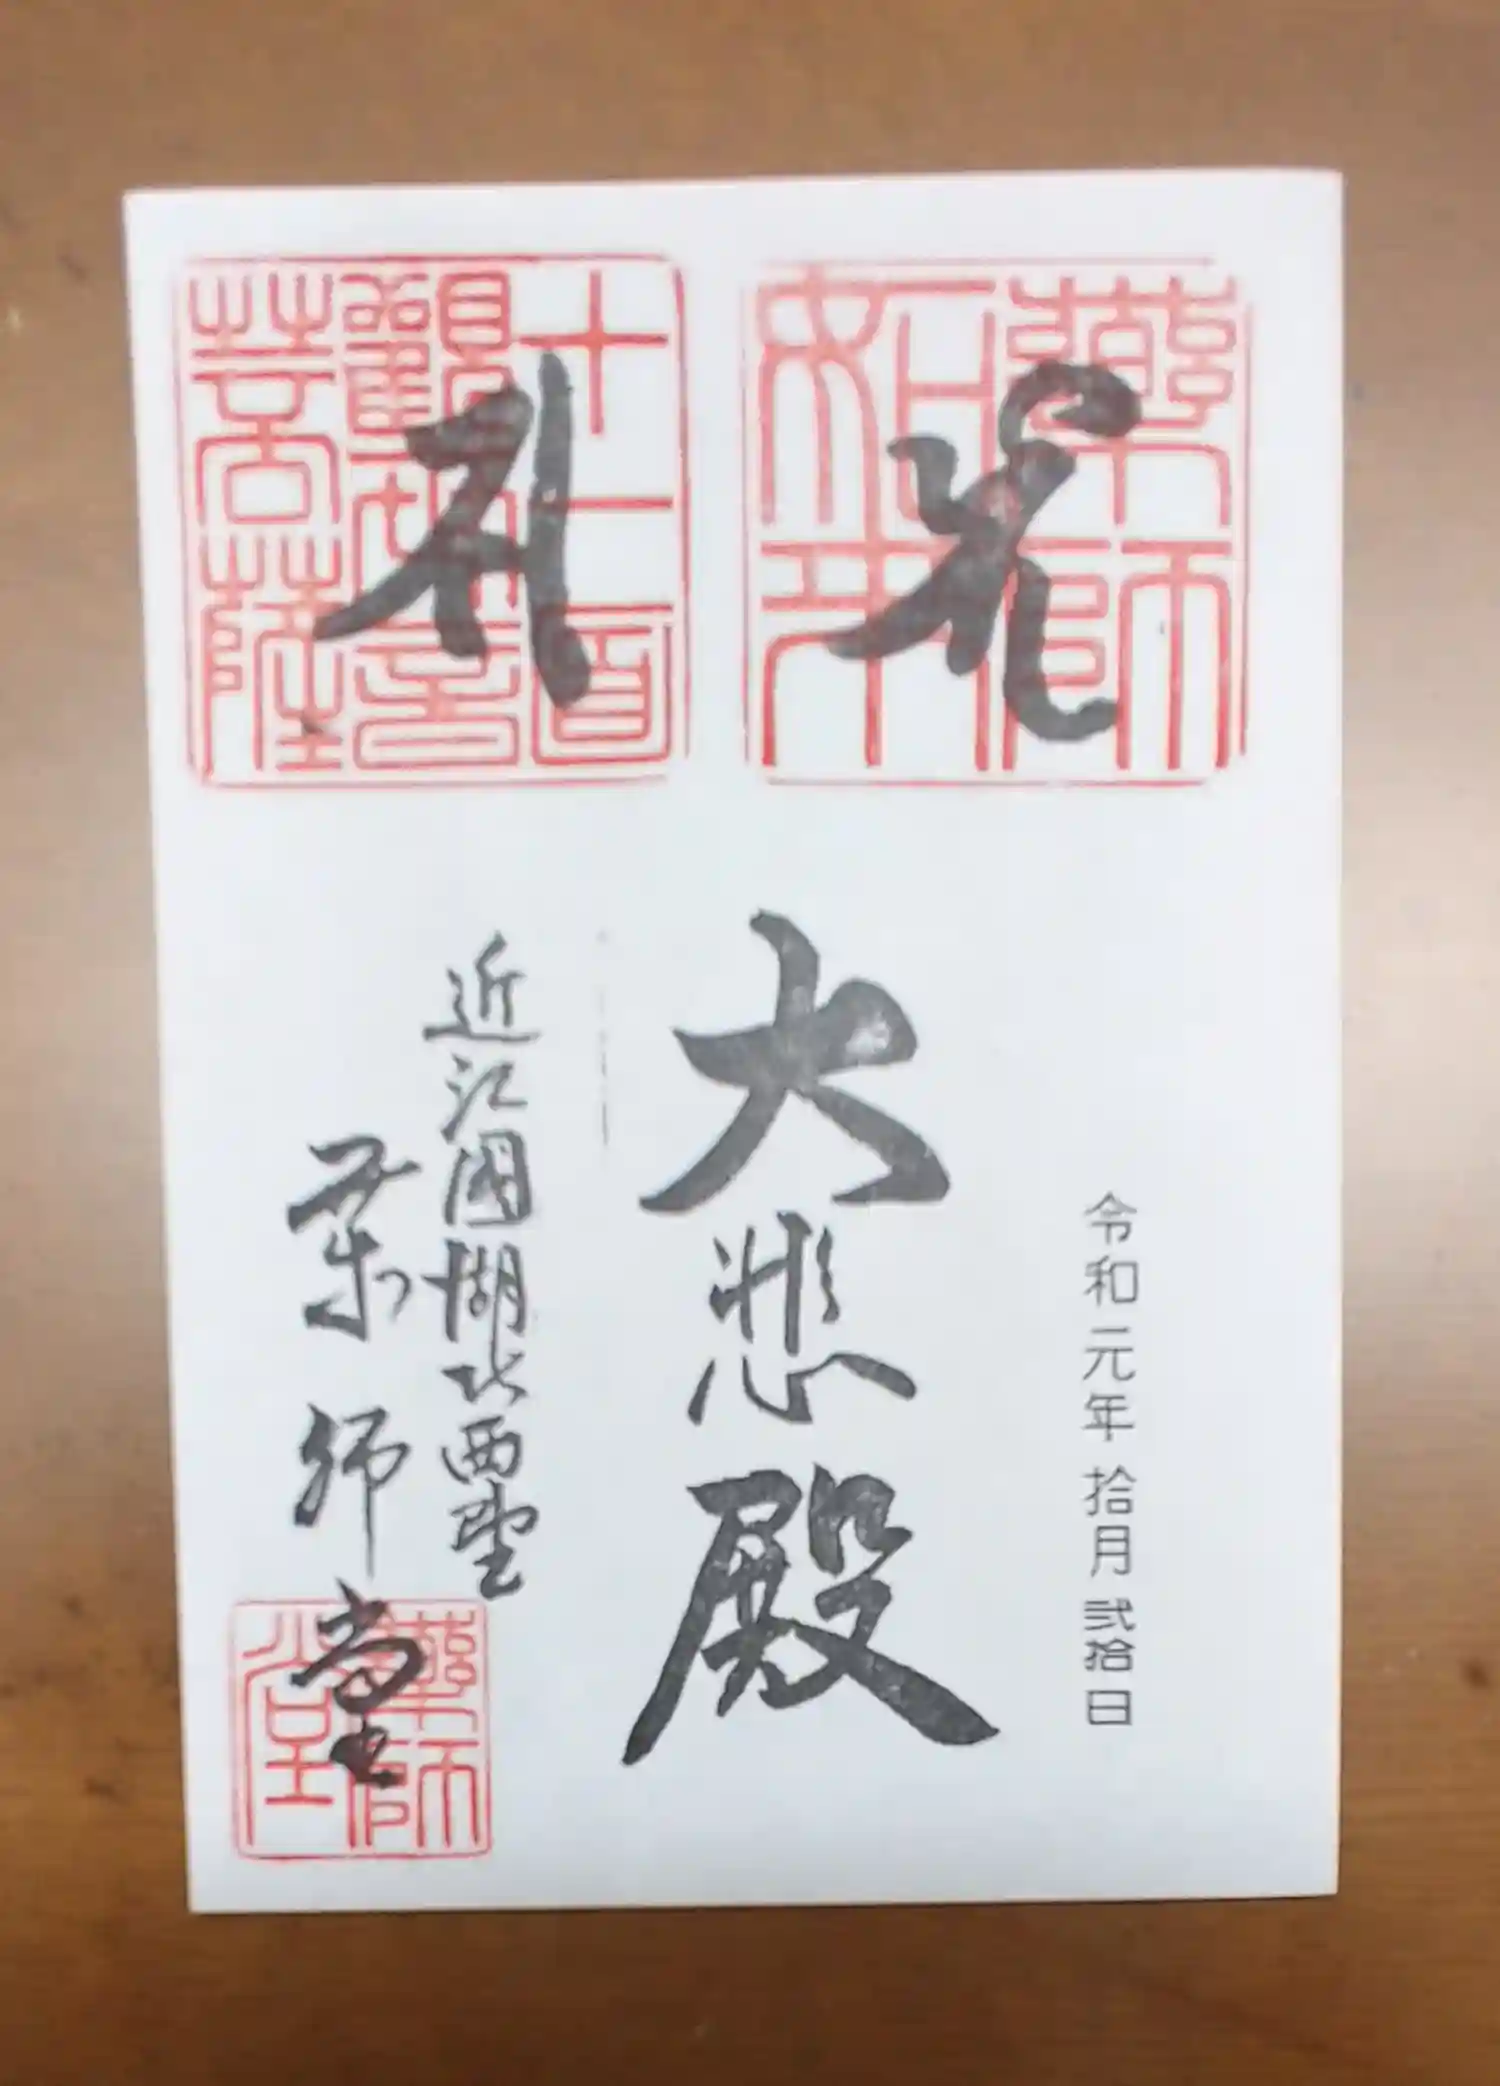 薬師如来
十一面観世音菩薩
令和元年 拾月 弐拾日
大悲殿
近江國湖北西野
薬師堂
薬師堂